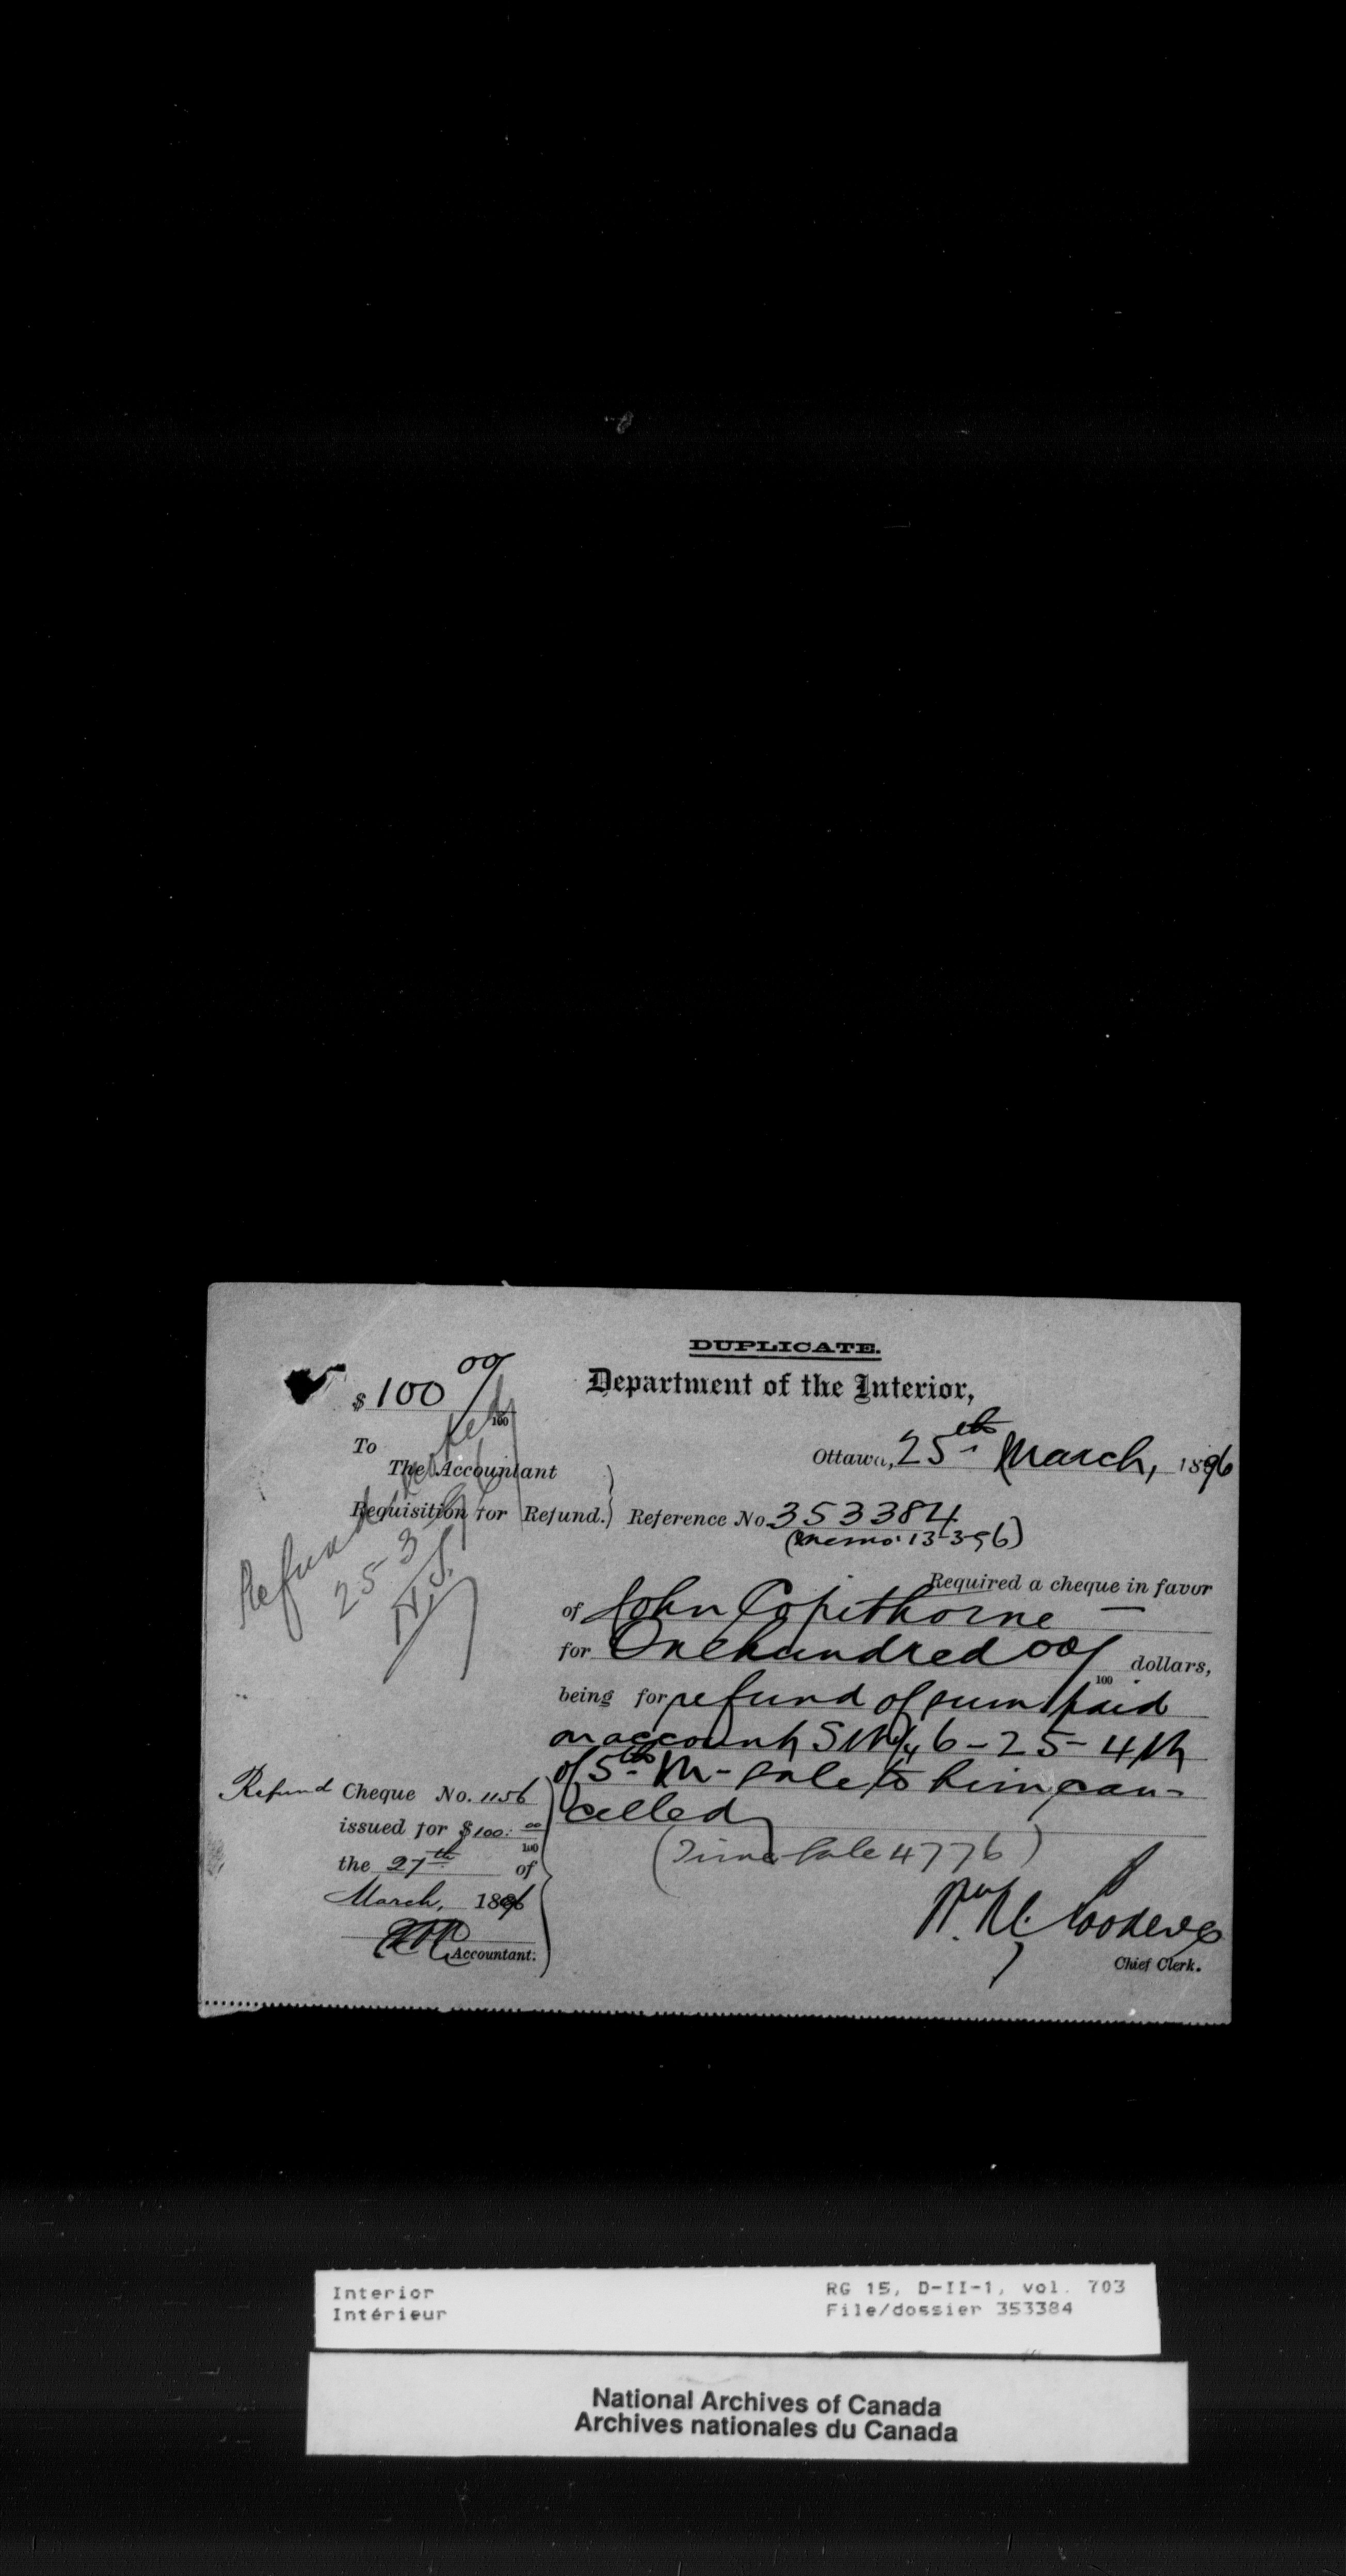 DUPLICATE.
Department of the Interior,
$ 100 00/100
Ottawa, 25th March, 1896
To
The Accountant
Requisition for Refund.
Reference No. 353384
(Memo 13-3-96)
Refund
25 3 96
Required a cheque in favor
of John Copithorne —
for One hundred 00/100 dollars,
being for refund of sum paid
on account SW 1/4 6-25-4 W
of 5th M- sale to him can-
celled
(Time Sale 4776)
Refund Cheque No. 1156
issued for $100: 00/100
the 27th of
March, 1896
Accountant.
Chief Clerk.
Interior
Intérieur
RG 15, D-II-1, vol. 703
File/dossier 353384
National Archives of Canada
Archives nationales du Canada